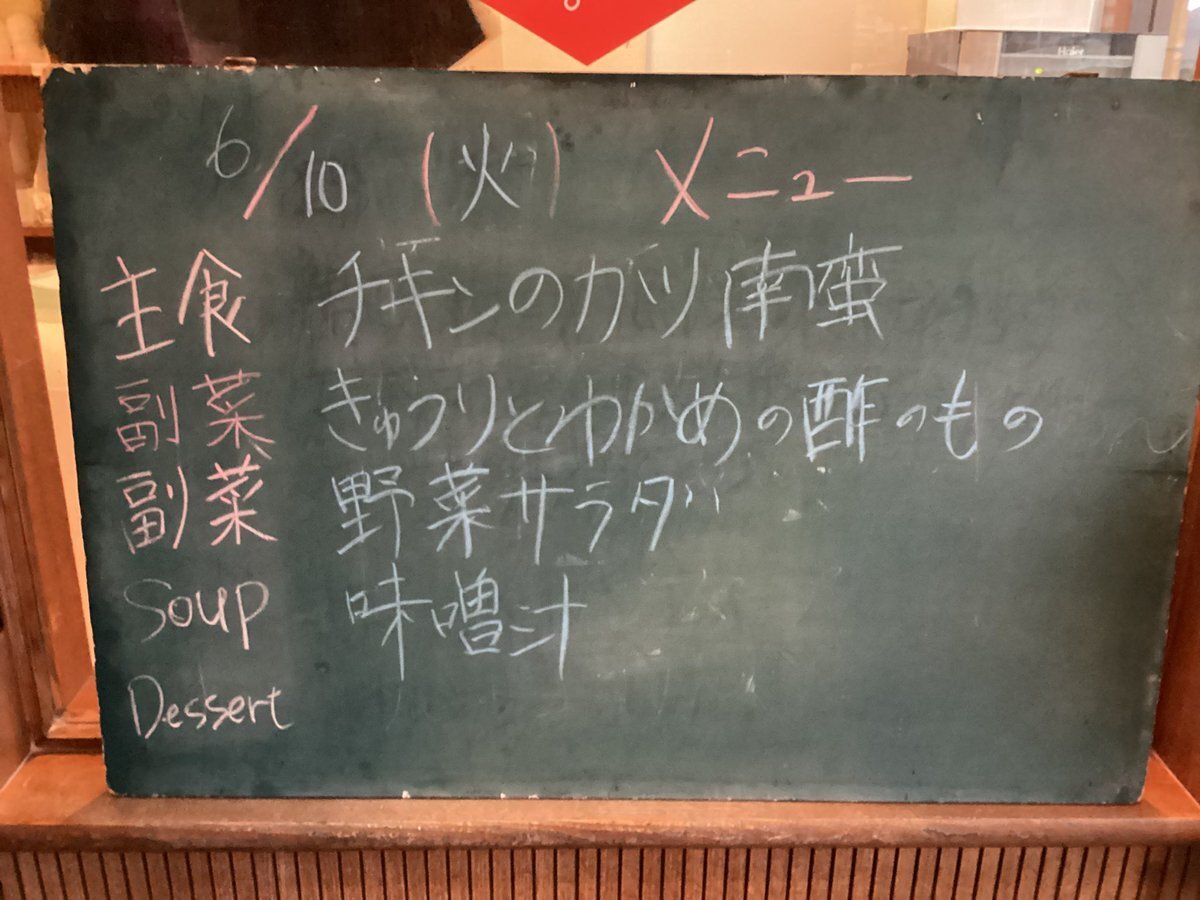 Haier
6/10 (火) メニュー
主食 チキンのガツ南蛮
副菜 きゅうりとわかめの酢のもの
副菜 野菜サラダ
Soup 味噌汁
Dessert